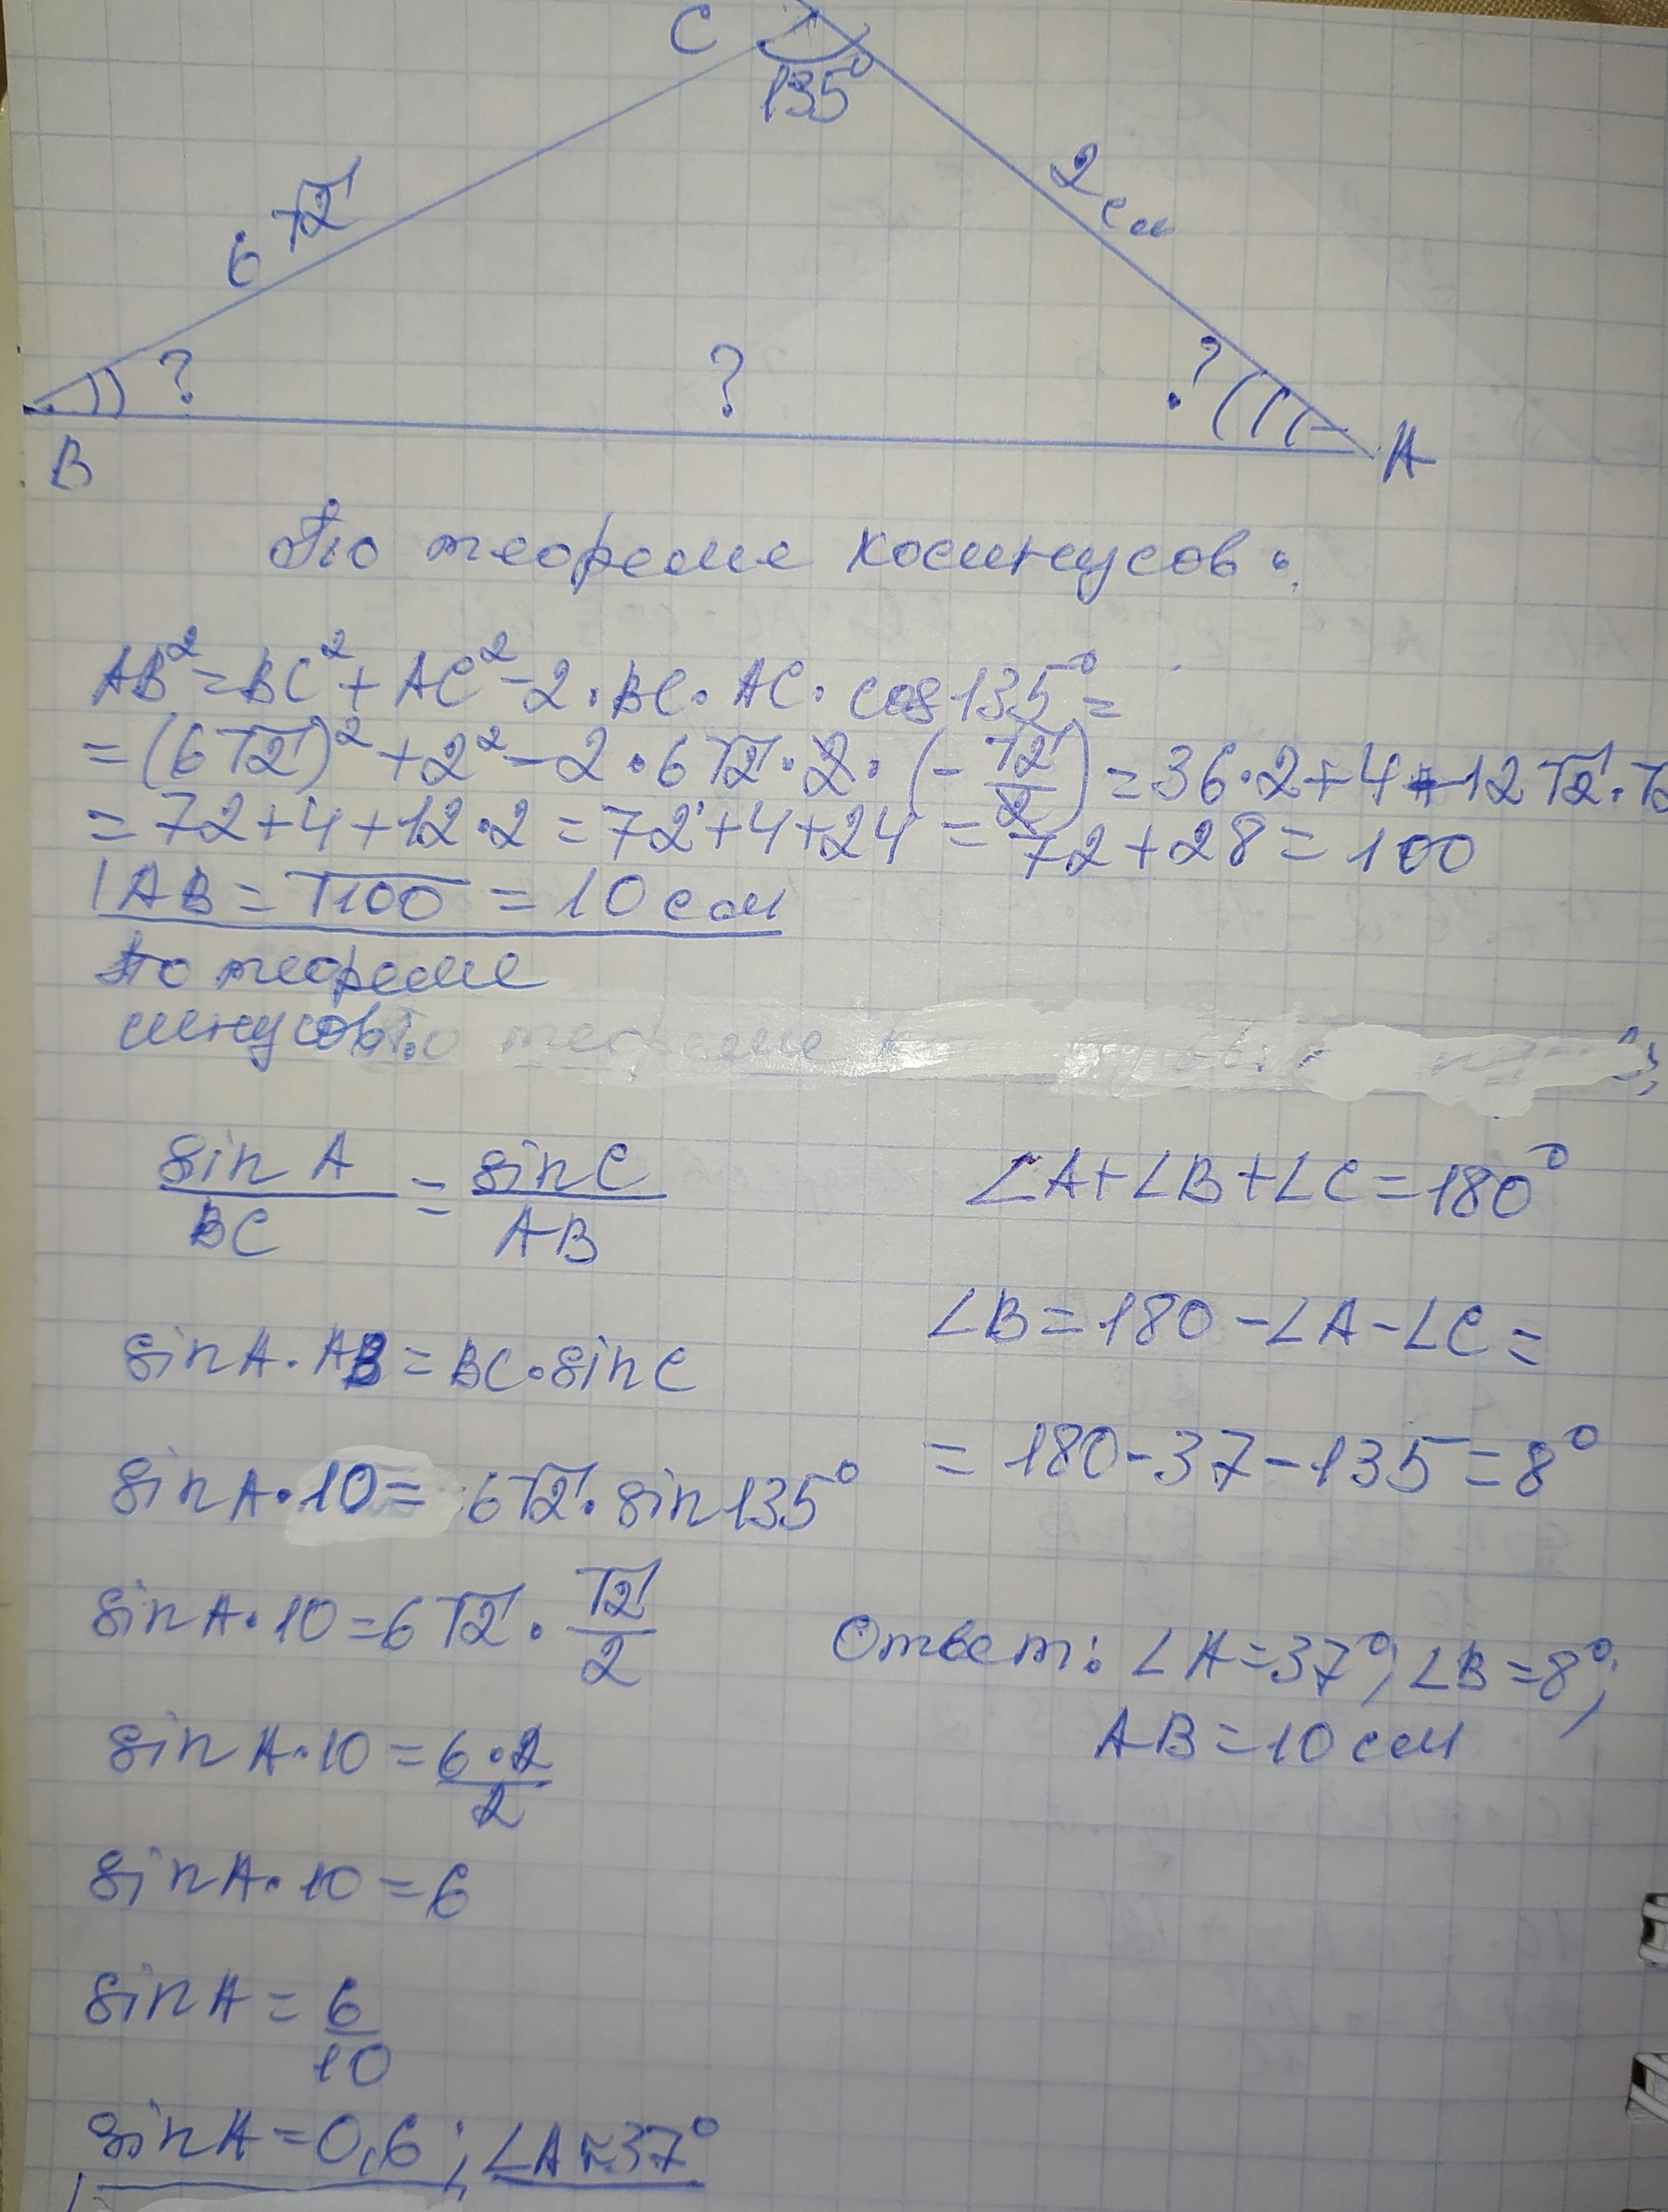 C
135°
6√2
2 см
?
?
?
B
A
По теореме косинусов:
AB² = BC² + AC² - 2 · BC · AC · cos 135° =
= (6√2)² + 2² - 2 · 6√2 · 2 · (- √2/2) = 36 · 2 + 4 + 12√2 · √2
= 72 + 4 + 12 · 2 = 72 + 4 + 24 = 72 + 28 = 100
AB = √100 = 10 см
По теореме
синусов:
sin A / BC = sin C / AB
sin A · AB = BC · sin C
sin A · 10 = 6√2 · sin 135°
sin A · 10 = 6√2 · √2/2
sin A · 10 = 6 · 2 / 2
sin A · 10 = 6
sin A = 6/10
sin A = 0,6 ; ∠A ≈ 37°
∠A + ∠B + ∠C = 180°
∠B = 180 - ∠A - ∠C =
= 180 - 37 - 135 = 8°
Ответ: ∠A = 37°; ∠B = 8°;
AB = 10 см